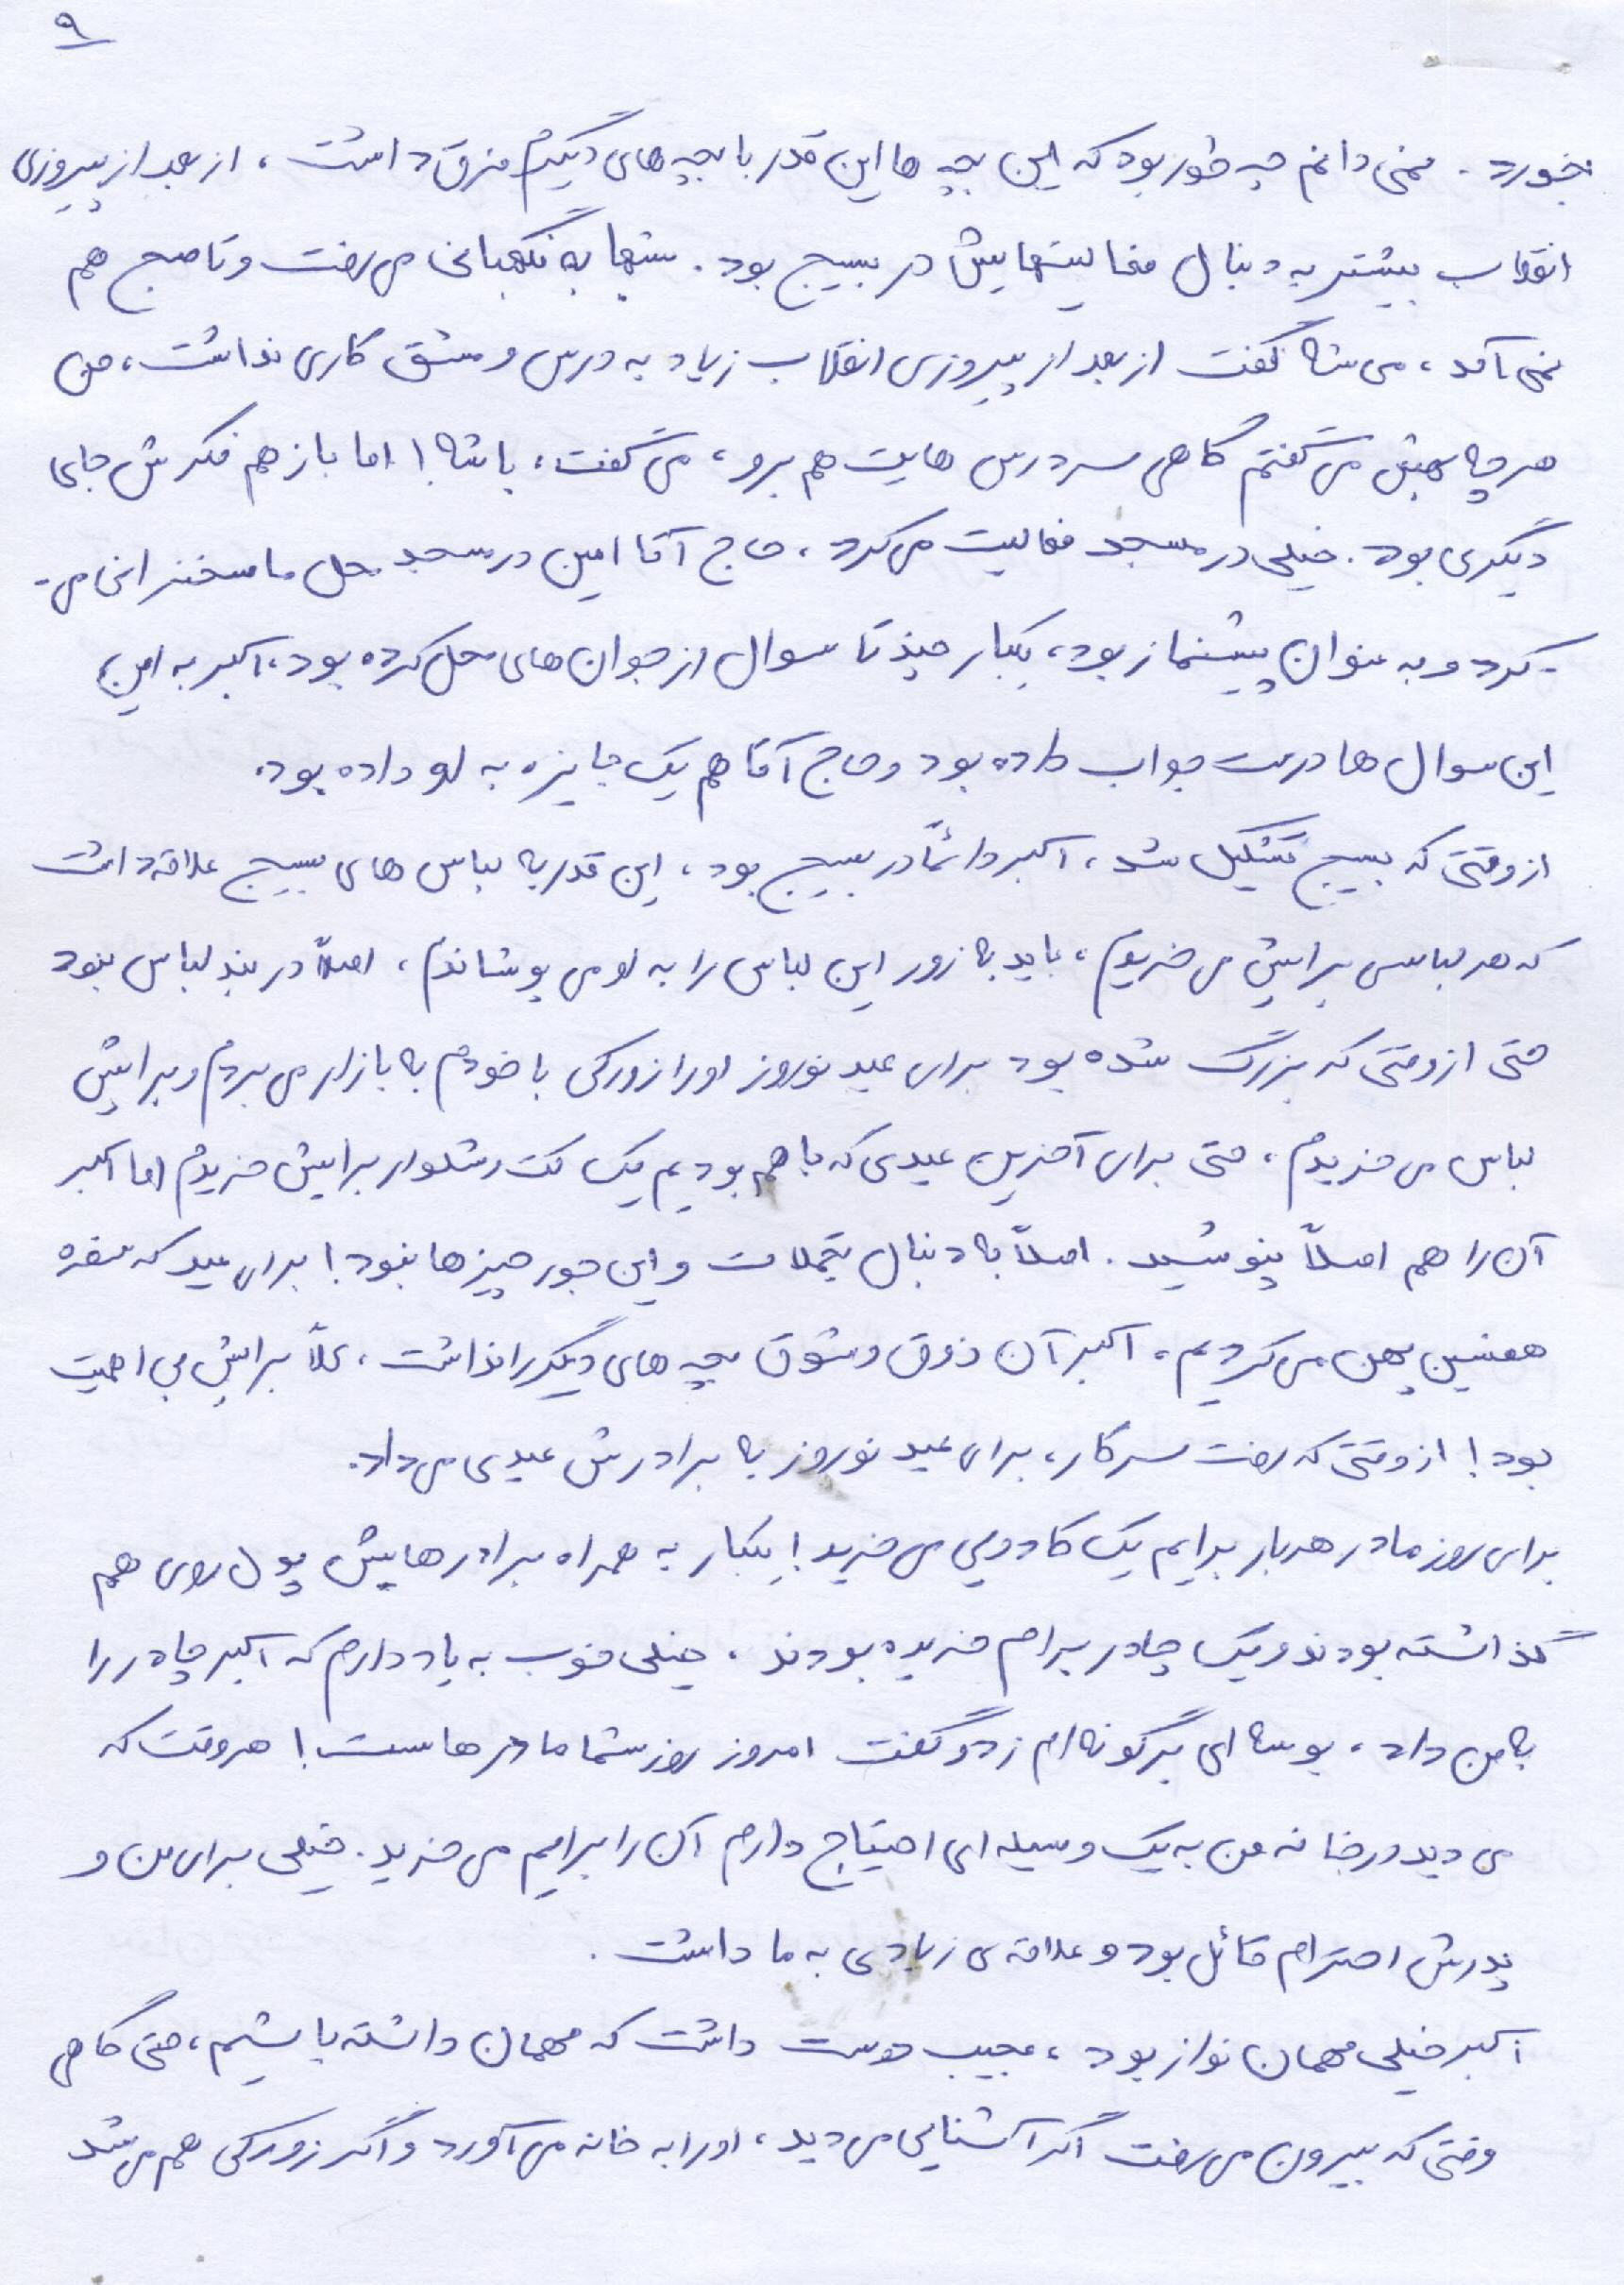 ۹
بخورد. نمی دانم چه طور بود که این بچه ها این قدر با بچه های دیگرم فرق داشت، از بعد از پیروزی
انقلاب بیشتر به دنبال فعالیتهایش در بسیج بود. شبها به نگهبانی می رفت و تا صبح هم
نمی آمد، می شه گفت از بعد از پیروزی انقلاب زیاد به درس و مشق کاری نداشت، من
هر چه بهش می گفتم گاهی سر درس هایت هم برو، می گفت، باشه! اما باز هم فکرش جای
دیگری بود. خیلی در مسجد فعالیت می کرد، حاج آقا امین در مسجد محل ما سخنرانی می-
-کرد و به عنوان پیشنماز بود، یکبار چند تا سوال از جوان های محل کرده بود، اکبر به این
این سوال ها درست جواب داده بود و حاج آقا هم یک جایزه به او داده بود.
از وقتی که بسیج تشکیل شد، اکبر دائماً در بسیج بود، این قدر به لباس های بسیج علاقه داشت
که هر لباسی برایش می خریدم، باید به زور این لباس را به او می پوشاندم، اصلاً در بند لباس نبود
حتی از وقتی که بزرگ شده بود برای عید نوروز او را زورکی با خودم به بازار می بردم و برایش
لباس می خریدم، حتی برای آخرین عیدی که با هم بودیم یک کت و شلوار برایش خریدم اما اکبر
آن را هم اصلاً نپوشید. اصلاً به دنبال تجملات و این جور چیزها نبود! برای عید که سفره
هفسین پهن می کردیم، اکبر آن ذوق و شوق بچه های دیگر را نداشت، کلاً برایش بی اهمیت
بود! از وقتی که رفت سر کار، برای عید نوروز به برادرش عیدی می داد.
برای روز مادر هر بار برایم یک کادویی می خرید! یکبار به همراه برادرهایش پول روی هم
گذاشته بودند و یک چادر برام خریده بودند، خیلی خوب به یاد دارم که اکبر چادر را
به من داد، بوسه ای بر گونه ام زد و گفت امروز روز شما مادرهاست! هر وقت که
می دید در خانه من به یک وسیله ای احتیاج دارم آن را برایم می خرید. خیلی برای من و
پدرش احترام قائل بود و علاقه ی زیادی به ما داشت.
اکبر خیلی مهمان نواز بود، عجیب دوست داشت که مهمان داشته باشیم، حتی گاهی
وقتی که بیرون می رفت اگر آشنایی می دید، او را به خانه می آورد و اگر زورکی هم می شد